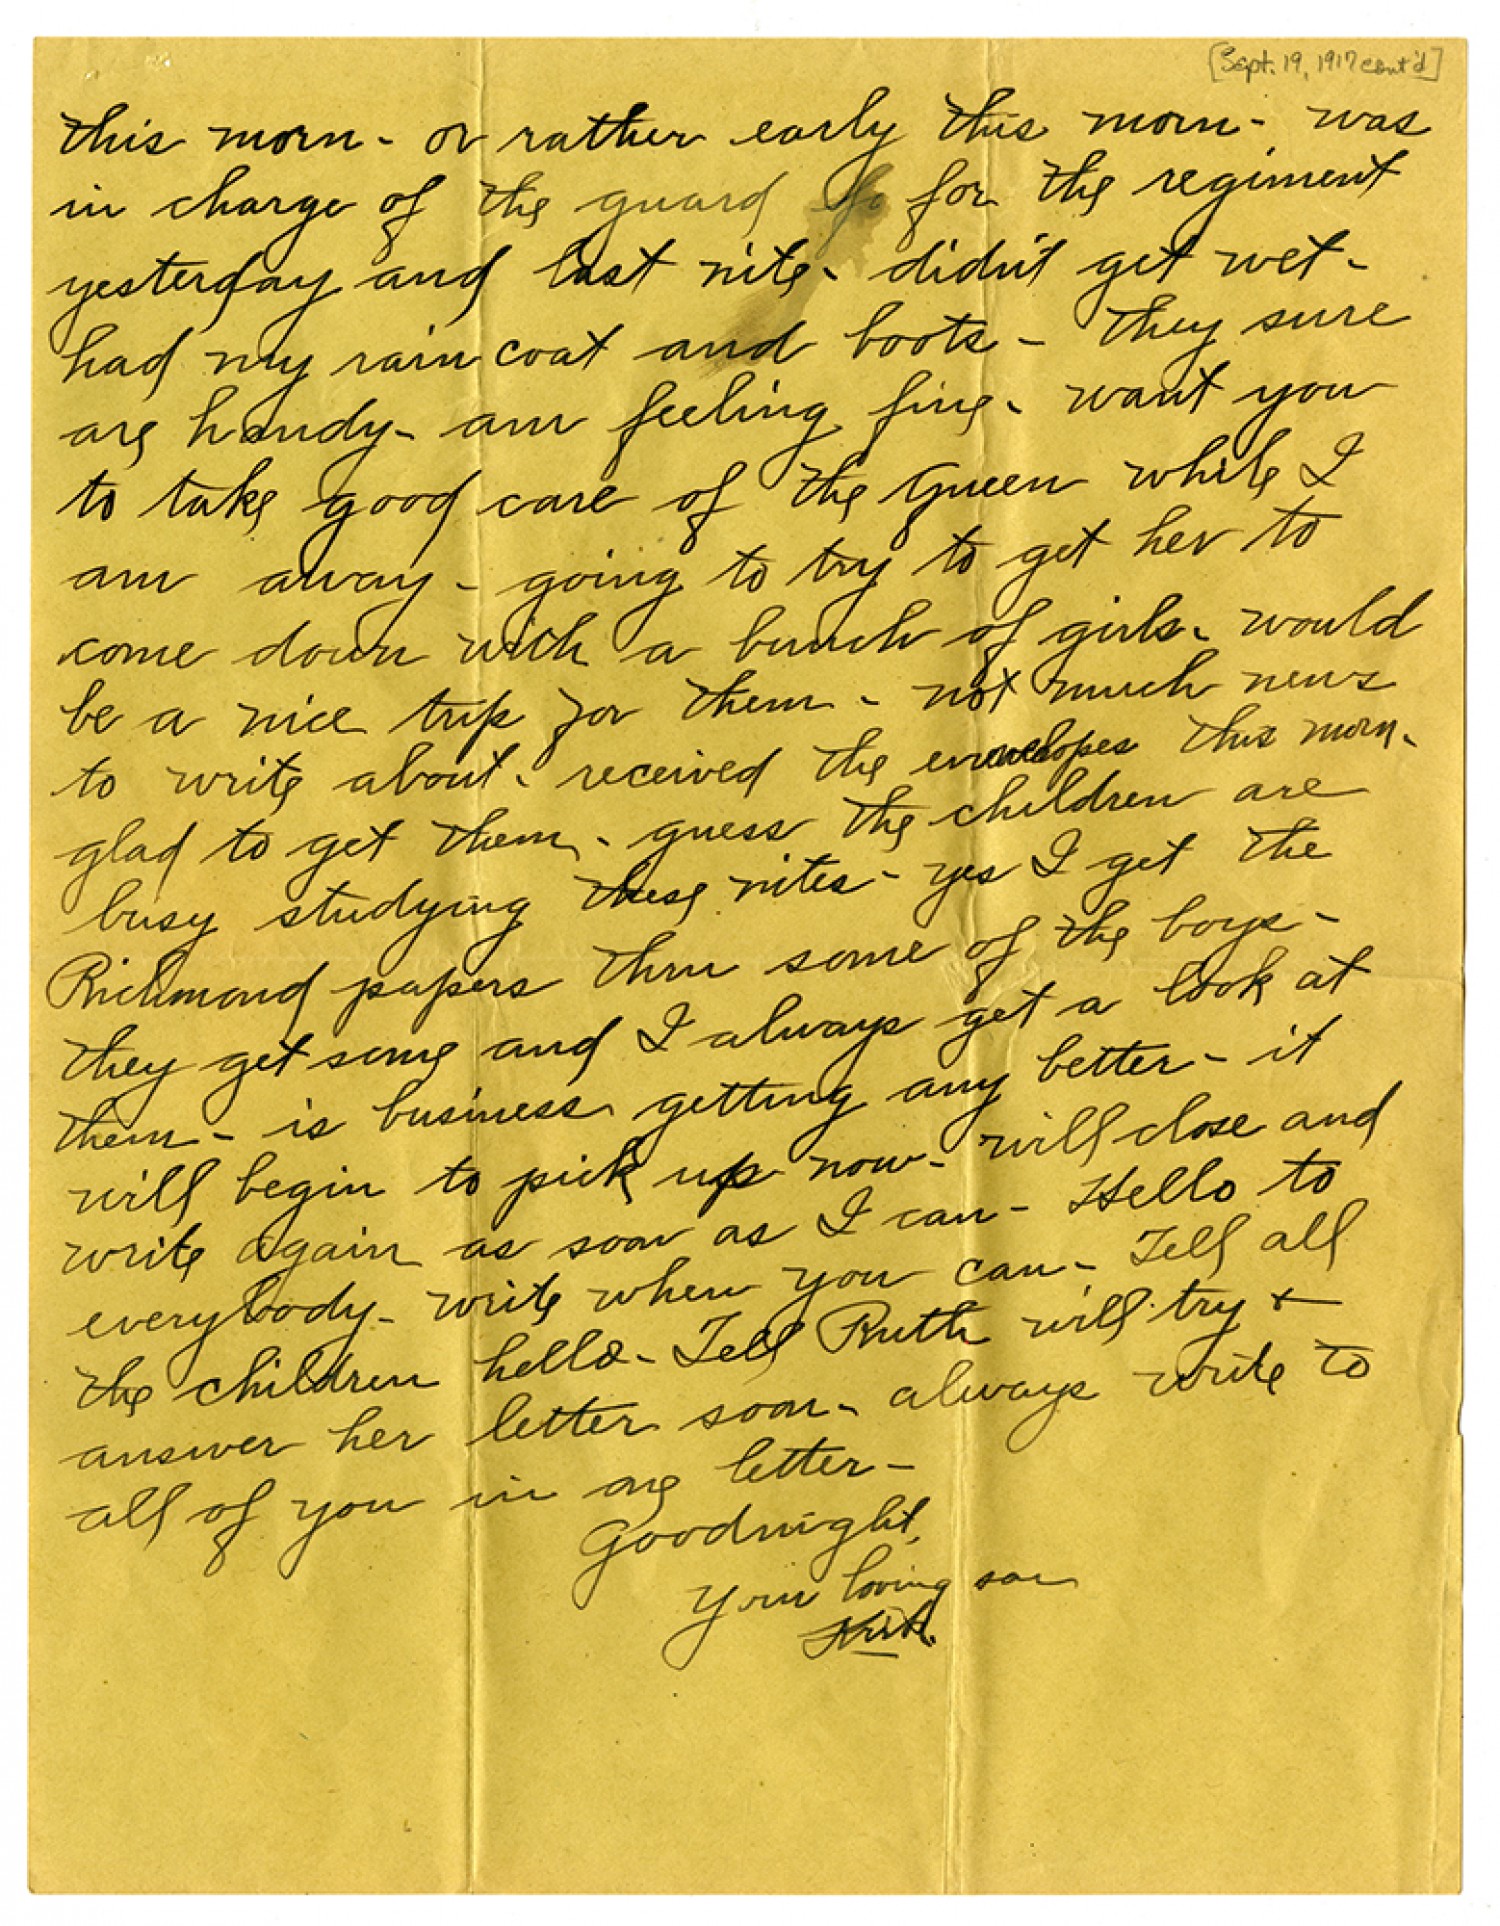 [Sept. 19, 1917 cont'd]
this morn - or rather early this morn - was
in charge of the guard for the regiment
yesterday and last nite - didn't get wet -
had my rain coat and boots - they sure
are handy - am feeling fine - want you
to take good care of the Queen while I
am away - going to try to get her to
come down with a bunch of girls - would
be a nice trip for them - not much news
to write about - received the envelopes this morn -
glad to get them - guess the children are
busy studying these nites - yes I get the
Richmond papers thru some of the boys -
they get some and I always get a look at
them - is business getting any better - it
will begin to pick up now - will close and
write again as soon as I can - Hello to
everybody - write when you can - Tell all
the children hello - Tell Ruth will try +
answer her letter soon - always write to
all of you in one letter -
Goodnight,
Your loving son
Kirk.